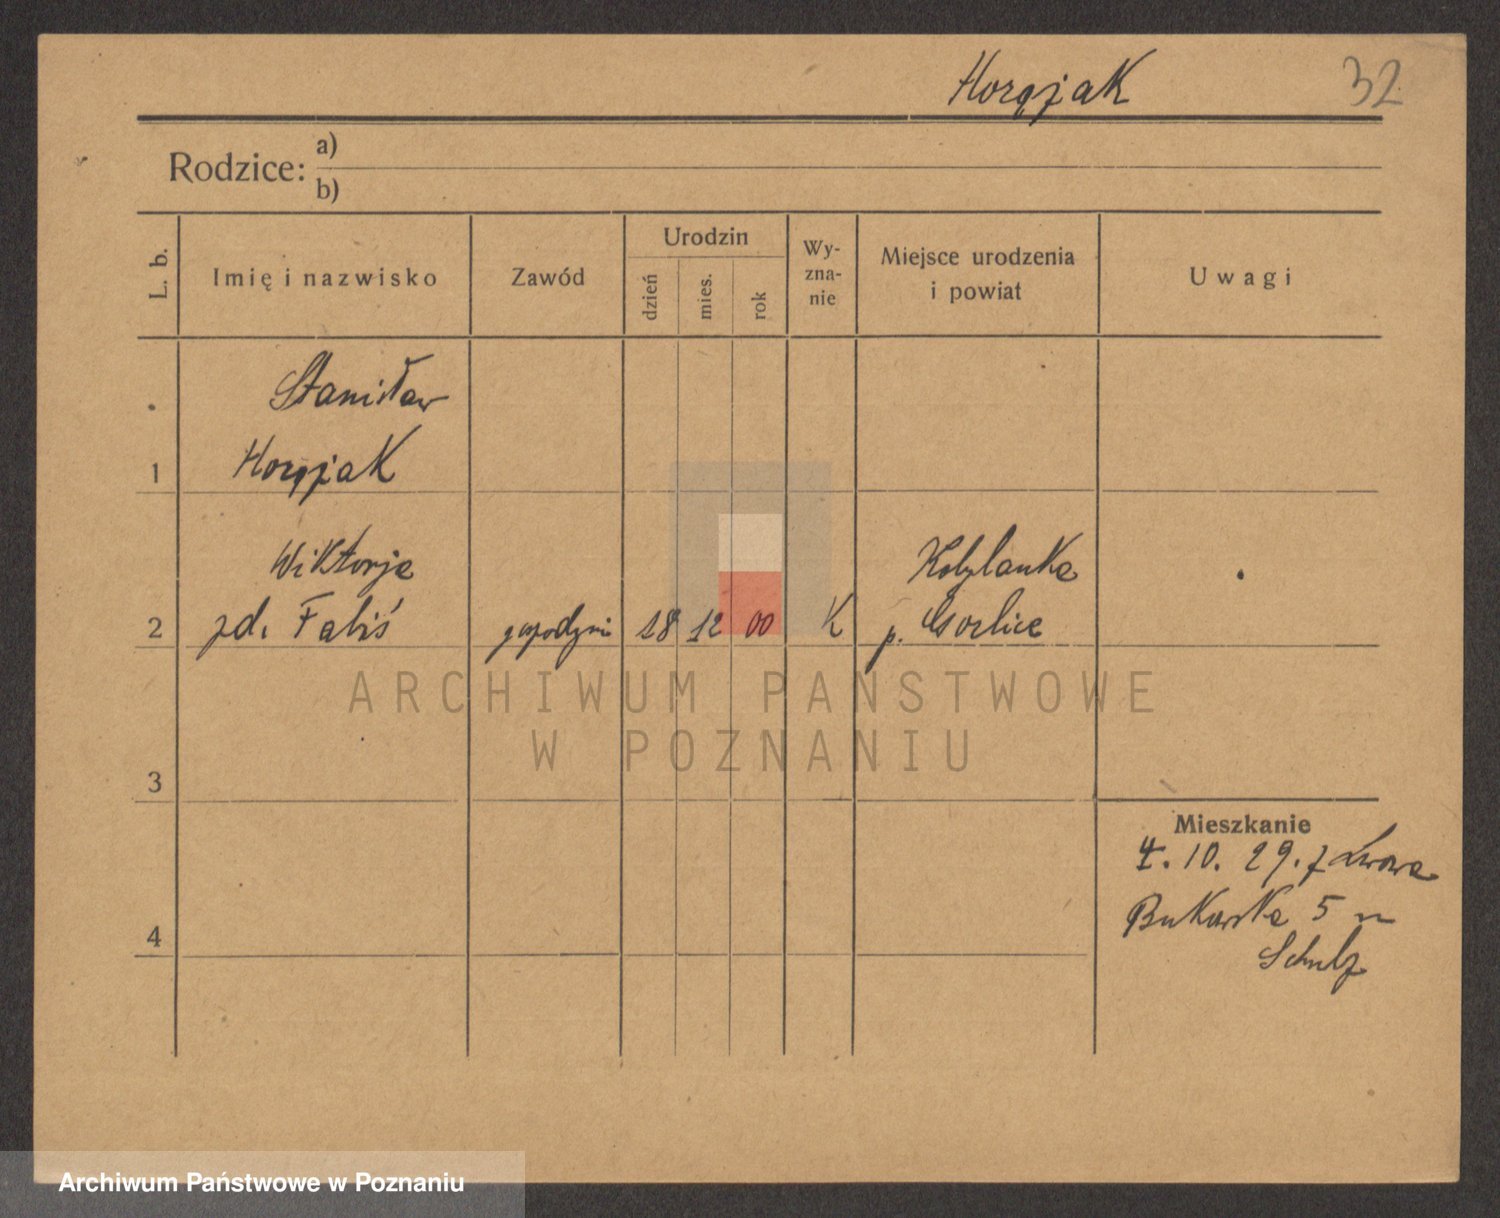 Horążak
32
Rodzice: a)
b)
L. b.
Imię i nazwisko
Zawód
Urodzin
dzień
mies.
rok
Wy-
zna-
nie
Miejsce urodzenia
i powiat
Uwagi
Stanisław
1 Horążak
Wiktorja
2 zd. Fabiś gospodyni 18 12 00 K
Kobylanka
p. Gorlice
3
Mieszkanie
4. 10. 29. z Lwowa
4
Bukowska 5 u
Schulz
ARCHIWUM PAŃSTWOWE
W POZNANIU
Archiwum Państwowe w Poznaniu